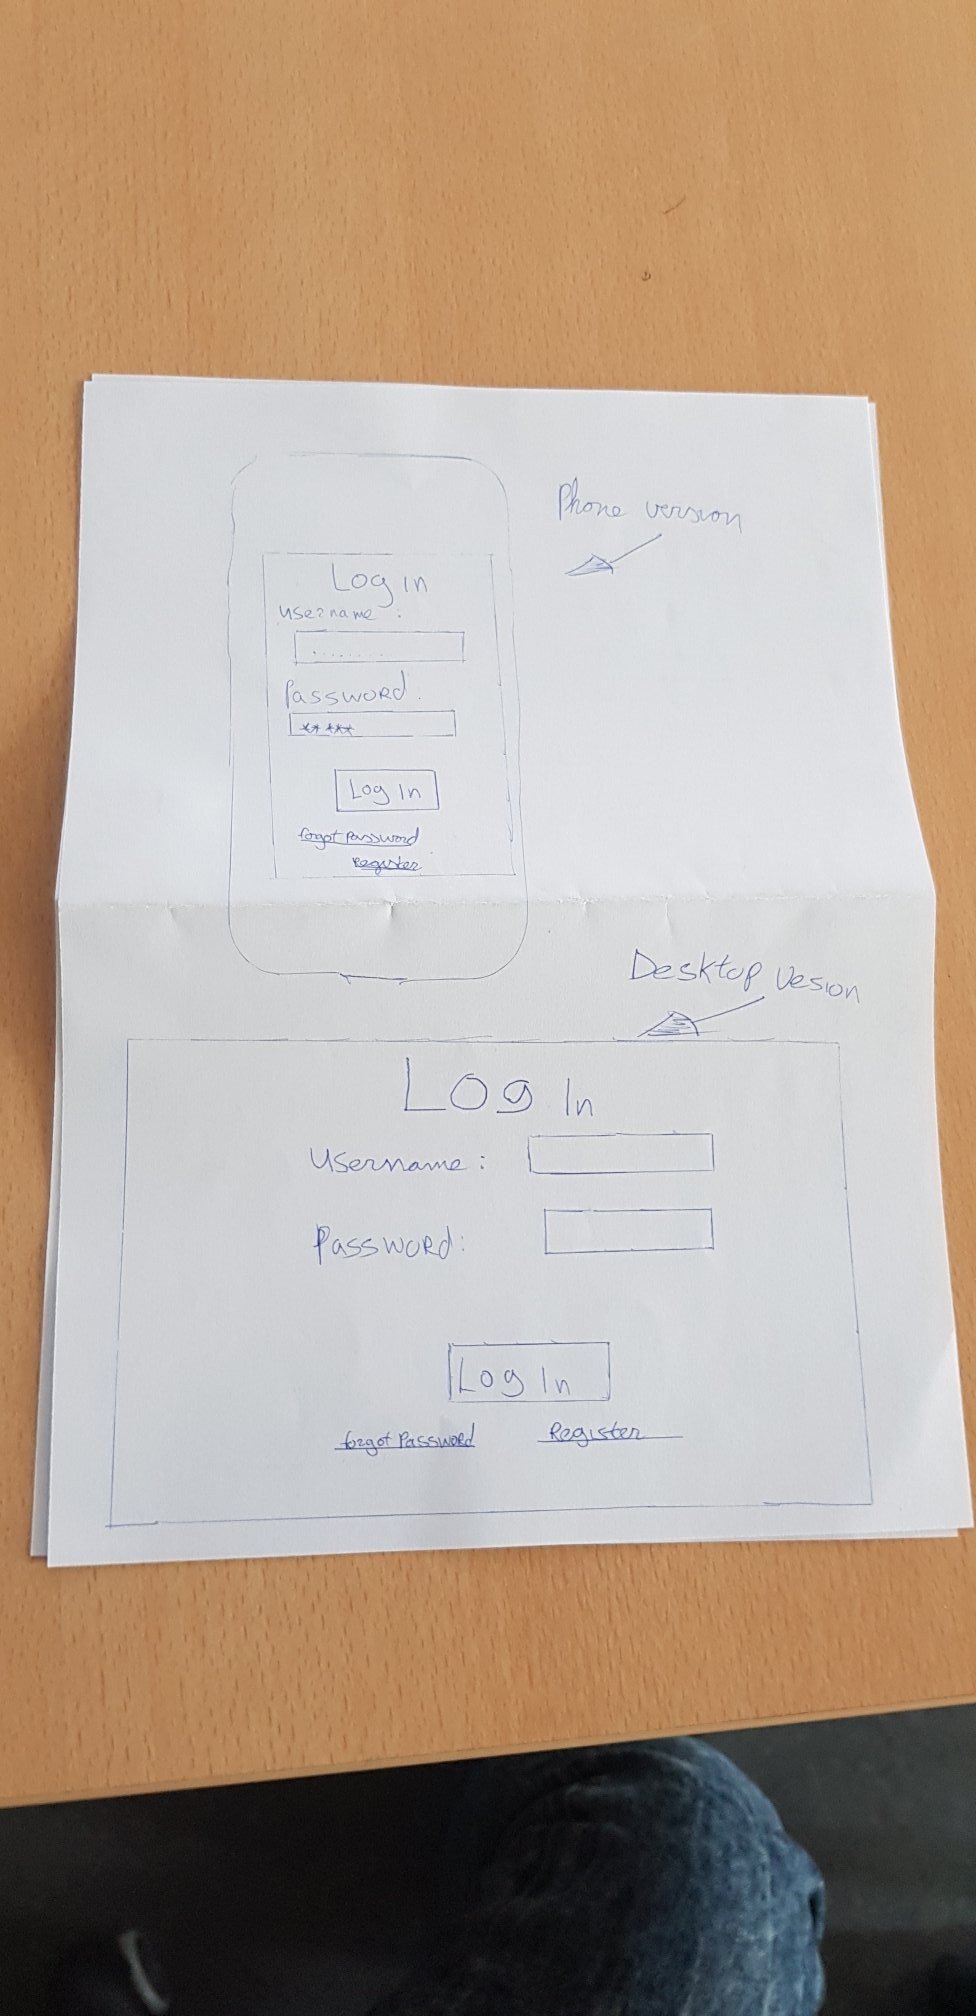 Phone version
Log in
username :
. . . . . . . .
Password.
*****
Log In
forgot Password
Register
Desktop Vesion
Log In
Username :
Password:
Log In
forgot Password
Register